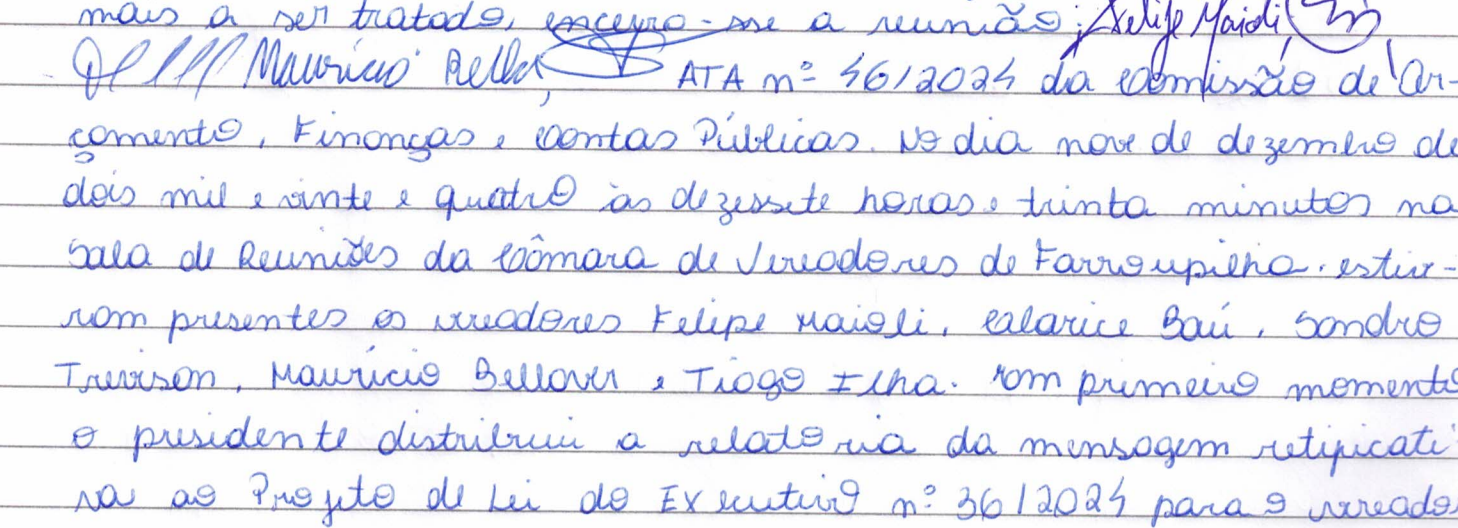 mais a ser tratado, encerro-se a reunião; Felipe Maioli,
Maurício Bellaver ATA nº 46/2024 da Comissão de Or-
çamento, Finanças e Contas Públicas. No dia nove de dezembro de
dois mil e vinte e quatro às dezessete horas e trinta minutos na
Sala de Reuniões da Câmara de Vereadores de Farroupilha. estive-
ram presentes os vereadores Felipe Maioli, Calarice Baú, Sandro
Trevisan, Maurício Bellaver e Tiago Ilha. num primeiro momento
o presidente distribuiu a relatoria da mensagem retificati
va ao Projeto de Lei do Executivo nº 36/2024 para o vereador